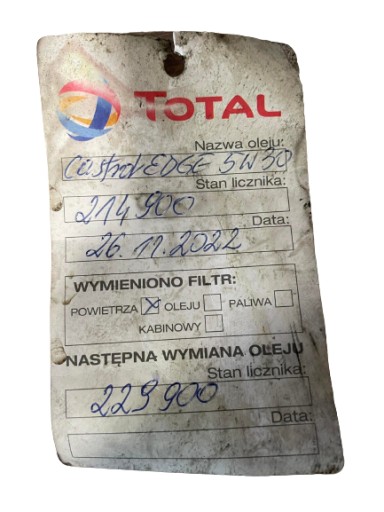 TOTAL
Nazwa oleju:
Castrol EDGE 5W30
Stan licznika:
214 900
Data:
26.11.2022
WYMIENIONO FILTR:
POWIETRZA X OLEJU PALIWA
KABINOWY
NASTĘPNA WYMIANA OLEJU
Stan licznika:
229 900
Data: